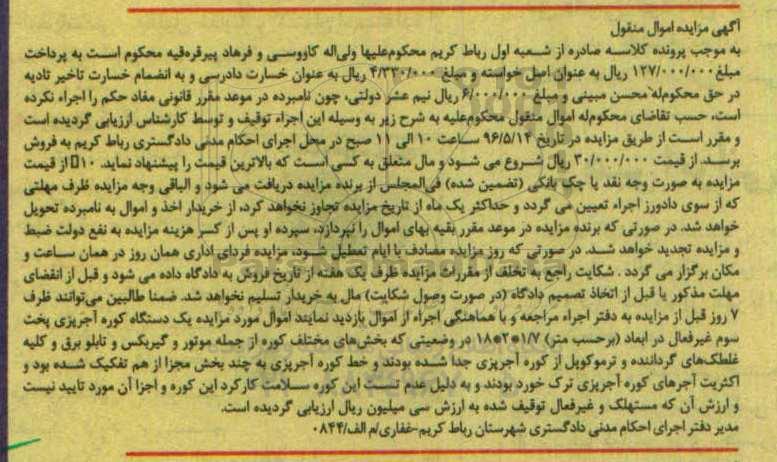 آگهی مزایده اموال منقول
به موجب پرونده کلاسه صادره از شعبه اول رباط کریم محکوم‌علیها ولی‌اله کاووسی و فرهاد پیرقره‌قیه محکوم است به پرداخت
مبلغ ۱۲۷/۰۰۰/۰۰۰ ریال به عنوان اصل خواسته و مبلغ ۴/۳۳۰/۰۰۰ ریال به عنوان خسارت دادرسی و به انضمام خسارت تاخیر تادیه
در حق محکوم‌له محسن مبینی و مبلغ ۶/۰۰۰/۰۰۰ ریال نیم عشر دولتی، چون نامبرده در موعد مقرر قانونی مفاد حکم را اجراء نکرده
است، حسب تقاضای محکوم‌له اموال منقول محکوم‌علیه به شرح زیر به وسیله این اجراء توقیف و توسط کارشناس ارزیابی گردیده است
و مقرر است از طریق مزایده در تاریخ ۹۶/۵/۱۴ ساعت ۱۰ الی ۱۱ صبح در محل اجرای احکام مدنی دادگستری رباط کریم به فروش
برسد. از قیمت ۳۰/۰۰۰/۰۰۰ ریال شروع می شود و مال متعلق به کسی است که بالاترین قیمت را پیشنهاد نماید. ۱۰□ از قیمت
مزایده به صورت وجه نقد یا چک بانکی (تضمین شده) فی‌المجلس از برنده مزایده دریافت می شود و الباقی وجه مزایده ظرف مهلتی
که از سوی دادورز اجراء تعیین می گردد و حداکثر یک ماه از تاریخ مزایده تجاوز نخواهد کرد، از خریدار اخذ و اموال به نامبرده تحویل
خواهد شد. در صورتی که برنده مزایده در موعد مقرر بقیه بهای اموال را نپردازد، سپرده او پس از کسر هزینه مزایده به نفع دولت ضبط
و مزایده تجدید خواهد شد. در صورتی که روز مزایده مصادف با ایام تعطیل شود، مزایده فردای اداری همان روز در همان ساعت و
مکان برگزار می گردد . شکایت راجع به تخلف از مقررات مزایده ظرف یک هفته از تاریخ فروش به دادگاه داده می شود و قبل از انقضای
مهلت مذکور یا قبل از اتخاذ تصمیم دادگاه (در صورت وصول شکایت) مال به خریدار تسلیم نخواهد شد. ضمنا طالبین می‌توانند ظرف
۷ روز قبل از مزایده به دفتر اجراء مراجعه و با هماهنگی اجراء از اموال بازدید نمایند اموال مورد مزایده یک دستگاه کوره آجرپزی پخت
سوم غیرفعال در ابعاد (برحسب متر) ۱/۷*۲*۱۸ در وضعیتی که بخش‌های مختلف کوره از جمله موتور و گیربکس و تابلو برق و کلیه
غلطک‌های گرداننده و ترموکوپل از کوره آجرپزی جدا شده بودند و خط کوره آجرپزی به چند بخش مجزا از هم تفکیک شده بود و
اکثریت آجرهای کوره آجرپزی ترک خورد بودند و به دلیل عدم تست این کوره سلامت کارکرد این کوره و اجزا آن مورد تایید نیست
و ارزش آن که مستهلک و غیرفعال توقیف شده به ارزش سی میلیون ریال ارزیابی گردیده است.
مدیر دفتر اجرای احکام مدنی دادگستری شهرستان رباط کریم-غفاری/م الف/۰۸۴۴